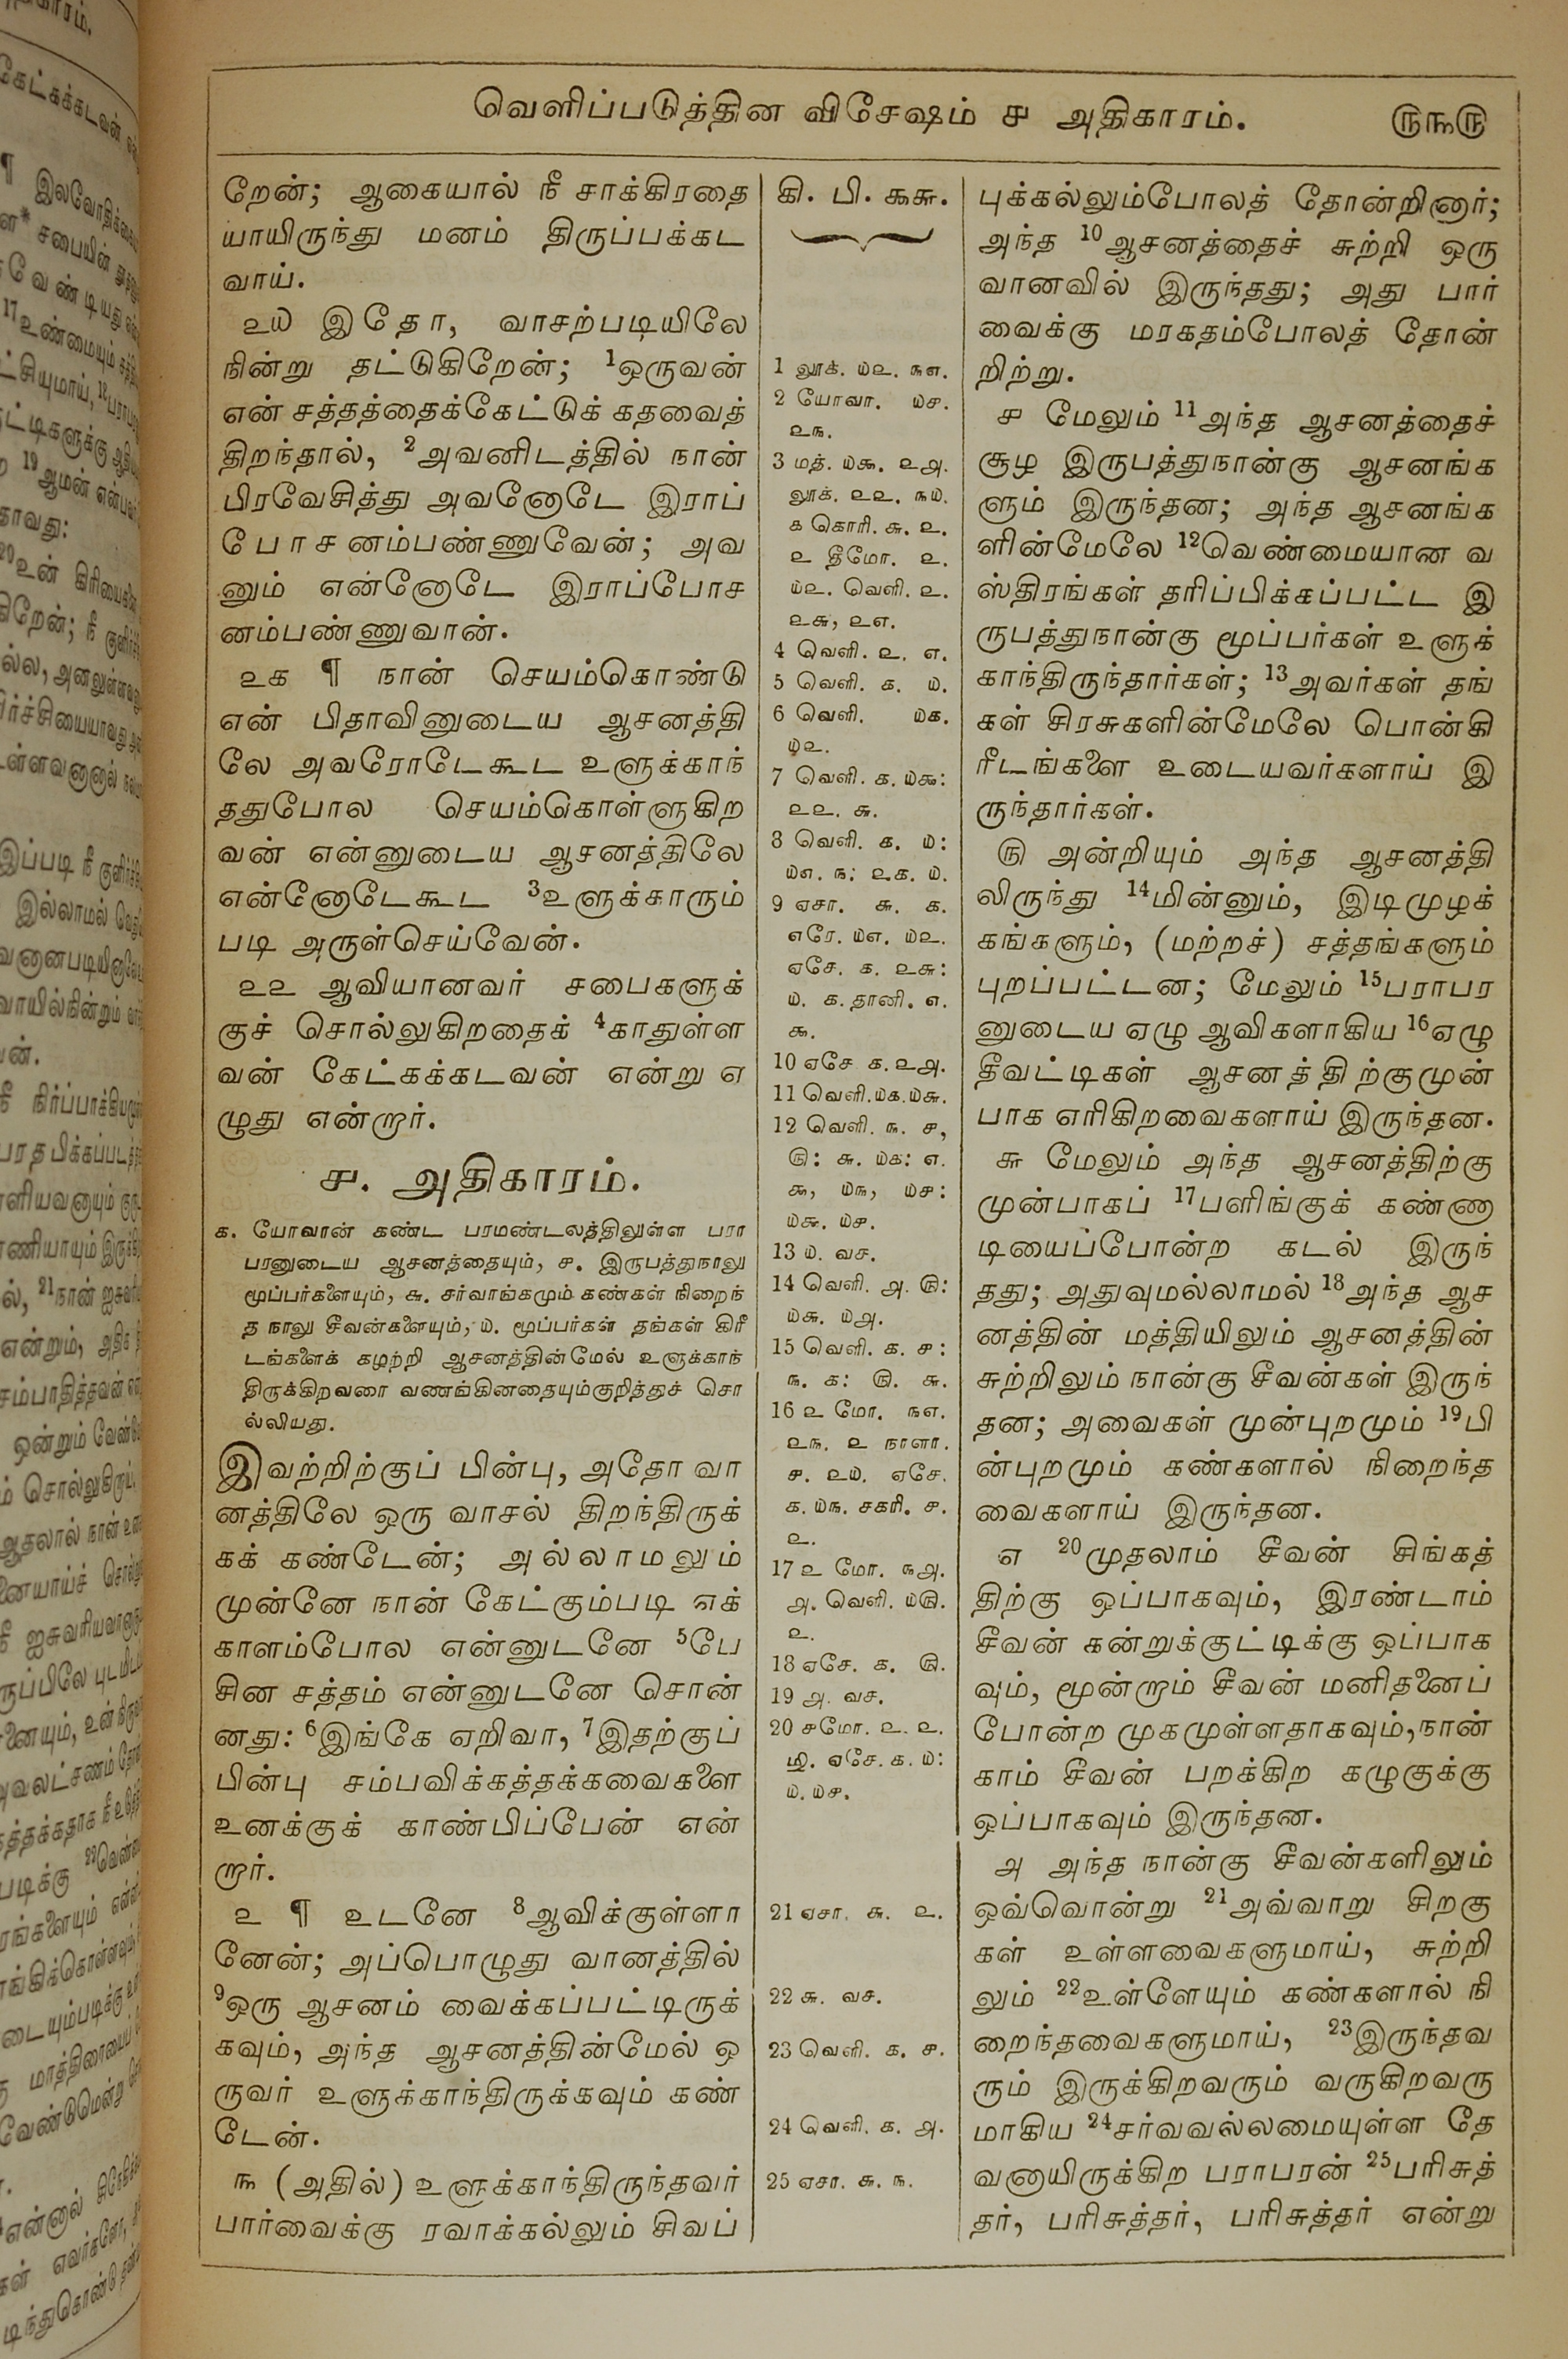 வெளிப்படுத்தின விசேஷம் ௪ அதிகாரம். ௫௩௫
றேன்; ஆகையால் நீ சாக்கிரதை
யாயிருந்து மனம் திருப்பக்கட
வாய்.
௨௰ இதோ, வாசற்படியிலே
நின்று தட்டுகிறேன்; 1ஒருவன்
என் சத்தத்தைக்கேட்டுக் கதவைத்
திறந்தால், 2அவனிடத்தில் நான்
பிரவேசித்து அவனோடே இராப்
போசனம்பண்ணுவேன்; அவ
னும் என்னோடே இராப்போச
னம்பண்ணுவான்.
௨௧ ¶ நான் செயம்கொண்டு
என் பிதாவினுடைய ஆசனத்தி
லே அவரோடேகூட உளுக்காந்
ததுபோல செயம்கொள்ளுகிற
வன் என்னுடைய ஆசனத்திலே
என்னோடேகூட 3உளுக்காரும்
படி அருள்செய்வேன்.
௨௨ ஆவியானவர் சபைகளுக்
குச் சொல்லுகிறதைக் 4காதுள்ள
வன் கேட்கக்கடவன் என்று எ
ழுது என்றார்.
௪. அதிகாரம்.
௧. யோவான் கண்ட பரமண்டலத்திலுள்ள பரா
பரனுடைய ஆசனத்தையும், ௪. இருபத்துநாலு
மூப்பர்களையும், ௬. சர்வாங்கமும் கண்கள் நிறைந்
த நாலு சீவன்களையும், ௰. மூப்பர்கள் தங்கள் கிரீ
டங்களைக் கழற்றி ஆசனத்தின்மேல் உளுக்காந்
திருக்கிறவரை வணங்கினதையும்குறித்துச் சொ
ல்லியது.
இவற்றிற்குப் பின்பு, அதோ வா
னத்திலே ஒரு வாசல் திறந்திருக்
கக் கண்டேன்; அல்லாமலும்
முன்னே நான் கேட்கும்படி எக்
காளம்போல என்னுடனே 5பே
சின சத்தம் என்னுடனே சொன்
னது: 6இங்கே ஏறிவா, 7இதற்குப்
பின்பு சம்பவிக்கத்தக்கவைகளை
உனக்குக் காண்பிப்பேன் என்
றார்.
௨ ¶ உடனே 8ஆவிக்குள்ளா
னேன்; அப்பொழுது வானத்தில்
9ஒரு ஆசனம் வைக்கப்பட்டிருக்
கவும், அந்த ஆசனத்தின்மேல் ஒ
ருவர் உளுக்காந்திருக்கவும் கண்
டேன்.
௩ (அதில்) உளுக்காந்திருந்தவர்
பார்வைக்கு ரவாக்கல்லும் சிவப்
கி. பி. ௯௬.
1 லூக். ௰௨. ௩௭.
2 யோவா. ௰௪.
௨௩.
3 மத். ௰௯. ௨௮.
லூக். ௨௨. ௩௰.
௧ கொரி. ௬. ௨.
௨ தீமோ. ௨.
௰௨. வெளி. ௨.
௨௬, ௨௭.
4 வெளி. ௨. ௭.
5 வெளி. ௧. ௰.
6 வெளி. ௰௧.
௰௨.
7 வெளி. ௧. ௰௯:
௨௨. ௬.
8 வெளி. ௧. ௰:
௰௭. ௩: ௨௧. ௰.
9 ஏசா. ௬. ௧.
எரே. ௰௭. ௰௨.
ஏசே. ௧. ௨௬:
௰. ௧. தானி. ௭.
௯.
10 ஏசே ௧. ௨௮.
11 வெளி. ௰௧. ௰௬.
12 வெளி. ௩. ௪,
௫: ௬. ௰௧: ௭.
௯, ௰௩, ௰௪:
௰௯. ௰௪.
13 ௰. வச.
14 வெளி. ௮. ௫:
௰௬. ௰௮.
15 வெளி. ௧. ௪:
௩. ௧: ௫. ௬.
16 ௨ மோ. ௩௭.
௨௩. ௨ நாளா.
௪. ௨௰. ஏசே.
௧. ௰௩. சகரி. ௪.
௨.
17 ௨ மோ. ௩௮.
௮. வெளி. ௰௫.
௨.
18 ஏசே. ௧. ௫.
19 ௮. வச.
20 ௪மோ. ௨. ௨.
ஏசே. ௧. ௰:
௰. ௰௪.
21 ஏசா. ௬. ௨.
22 ௬. வச.
23 வெளி. ௧. ௪.
24 வெளி. ௧. ௮.
25 ஏசா. ௬. ௩.
புக்கல்லும்போலத் தோன்றினார்;
அந்த 10ஆசனத்தைச் சுற்றி ஒரு
வானவில் இருந்தது; அது பார்
வைக்கு மரகதம்போலத் தோன்
றிற்று.
௪ மேலும் 11அந்த ஆசனத்தைச்
சூழ இருபத்துநான்கு ஆசனங்க
ளும் இருந்தன; அந்த ஆசனங்க
ளின்மேலே 12வெண்மையான வ
ஸ்திரங்கள் தரிப்பிக்கப்பட்ட இ
ருபத்துநான்கு மூப்பர்கள் உளுக்
காந்திருந்தார்கள்; 13அவர்கள் தங்
கள் சிரசுகளின்மேலே பொன்கி
ரீடங்களை உடையவர்களாய் இ
ருந்தார்கள்.
௫ அன்றியும் அந்த ஆசனத்தி
லிருந்து 14மின்னும், இடிமுழக்
கங்களும், (மற்றச்) சத்தங்களும்
புறப்பட்டன; மேலும் 15பராபர
னுடைய ஏழு ஆவிகளாகிய 16ஏழு
தீவட்டிகள் ஆசனத்திற்குமுன்
பாக எரிகிறவைகளாய் இருந்தன.
௬ மேலும் அந்த ஆசனத்திற்கு
முன்பாகப் 17பளிங்குக் கண்ணா
டியைப்போன்ற கடல் இருந்
தது; அதுவுமல்லாமல் 18அந்த ஆச
னத்தின் மத்தியிலும் ஆசனத்தின்
சுற்றிலும் நான்கு சீவன்கள் இருந்
தன; அவைகள் முன்புறமும் 19பி
ன்புறமும் கண்களால் நிறைந்த
வைகளாய் இருந்தன.
௭ 20முதலாம் சீவன் சிங்கத்
திற்கு ஒப்பாகவும், இரண்டாம்
சீவன் கன்றுக்குட்டிக்கு ஒப்பாக
வும், மூன்றாம் சீவன் மனிதனைப்
போன்ற முகமுள்ளதாகவும்,நான்
காம் சீவன் பறக்கிற கழுகுக்கு
ஒப்பாகவும் இருந்தன.
௮ அந்த நான்கு சீவன்களிலும்
ஒவ்வொன்று 21அவ்வாறு சிறகு
கள் உள்ளவைகளுமாய், சுற்றி
லும் 22உள்ளேயும் கண்களால் நி
றைந்தவைகளுமாய், 23இருந்தவ
ரும் இருக்கிறவரும் வருகிறவரு
மாகிய 24சர்வவல்லமையுள்ள தே
வனாயிருக்கிற பராபரன் 25பரிசுத்
தர், பரிசுத்தர், பரிசுத்தர் என்று